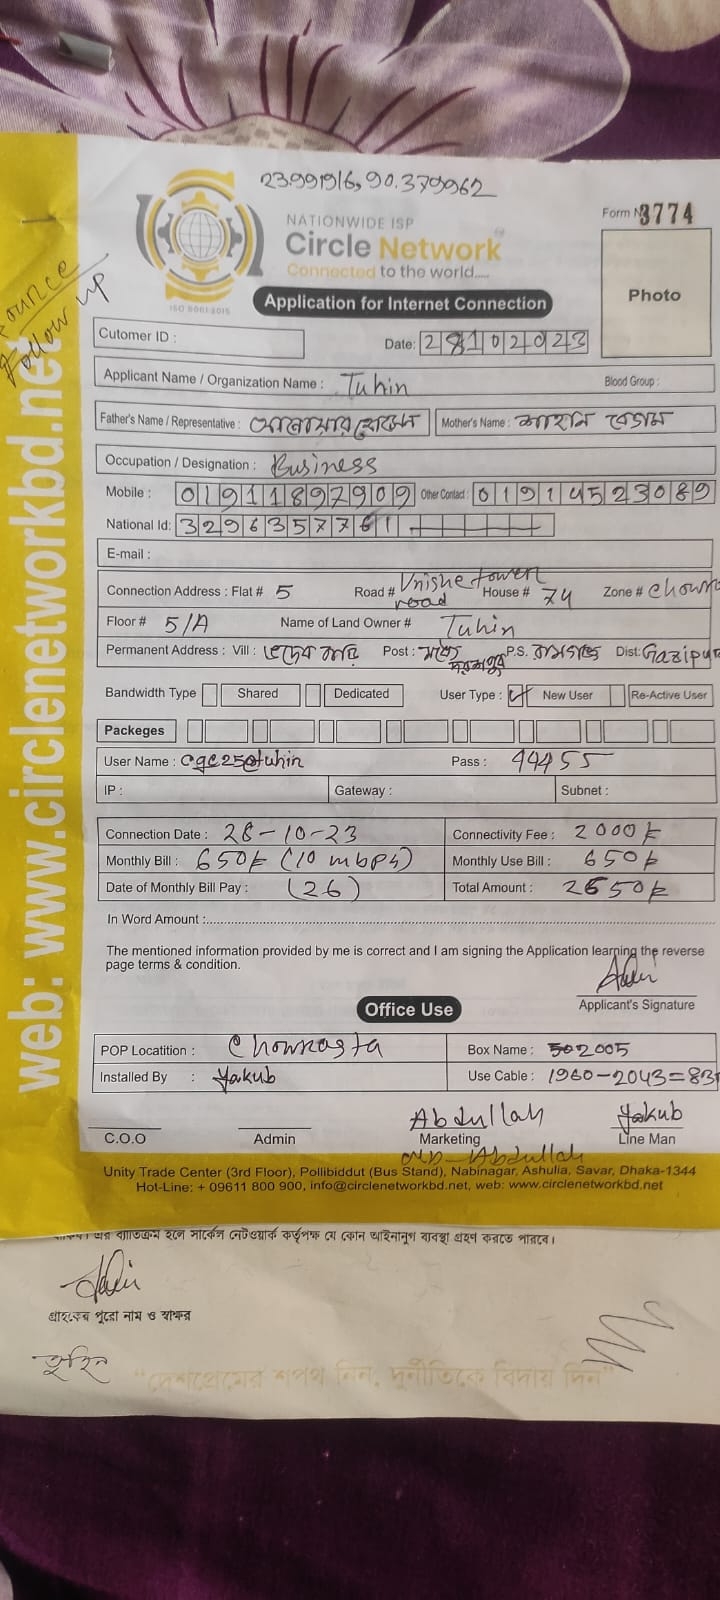 23.991916, 90.379962
NATIONWIDE ISP
Form № 3774
Circle Network
Connected to the world.....
ISO 9001:2015
Photo
Application for Internet Connection
Follow up
Cutomer ID :
Date: 28102023
Applicant Name / Organization Name : Tuhin Blood Group :
Father's Name / Representative : Mother's Name : বেগম
Occupation / Designation : Business
Mobile : 01911897909 Other Contact : 01914523089
National Id: 3296357761
E-mail :
Connection Address : Flat # 5 Road # tower road House # 74 Zone #
Floor # 5/A Name of Land Owner # Tuhin
Permanent Address : Vill : Post : P.S. Dist: Gazipur
Bandwidth Type Shared Dedicated User Type : New User Re-Active User
Packeges
User Name : cgc25@tuhin Pass : 44455
IP : Gateway : Subnet :
Connection Date : 28-10-23 Connectivity Fee : 2000৳
Monthly Bill : 650৳ (10 mbps) Monthly Use Bill : 650৳
Date of Monthly Bill Pay : (26) Total Amount : 2650৳
In Word Amount :
The mentioned information provided by me is correct and I am signing the Application learning the reverse
page terms & condition.
Applicant's Signature
Office Use
POP Locatition : Chowrasta Box Name : 502005
Installed By : Yakub Use Cable : 1960-2043=83
Abdullah Yakub
C.O.O Admin Marketing Line Man
Abdullah
Unity Trade Center (3rd Floor), Pollibiddut (Bus Stand), Nabinagar, Ashulia, Savar, Dhaka-1344
Hot-Line: + 09611 800 900, info@circlenetworkbd.net, web: www.circlenetworkbd.net
web: www.circlenetworkbd.net
এর ব্যতিক্রম হলে সার্কেল নেটওয়ার্ক কর্তৃপক্ষ যে কোন আইনানুগ ব্যবস্থা গ্রহণ করতে পারবে।
গ্রাহকের পুরো নাম ও স্বাক্ষর
তুহিন
"দেশপ্রেমের শপথ নিন, দুর্নীতিকে বিদায় দিন"